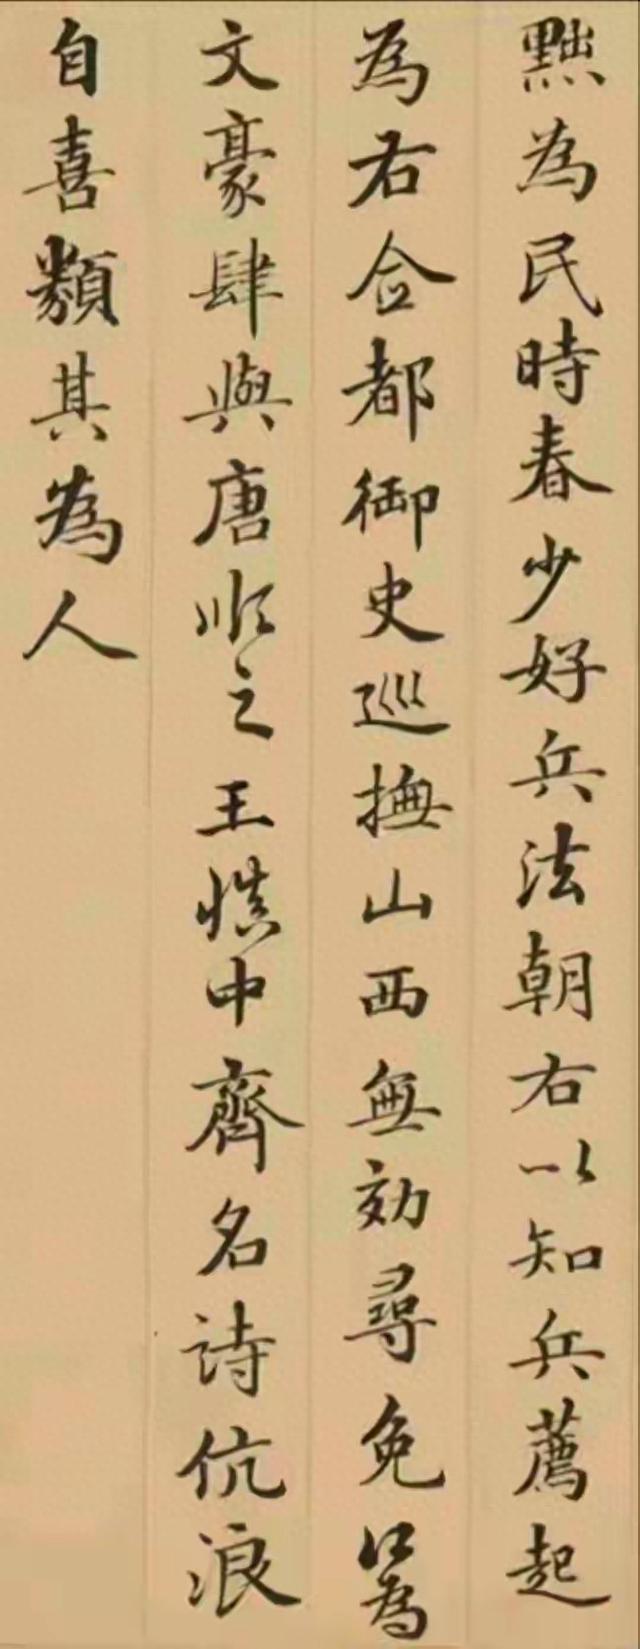 黜為民時春少好兵法朝右以知兵薦起
為右僉都御史巡撫山西無効尋免為
文豪肆與唐順之王慎中齊名詩伉浪
自喜類其為人